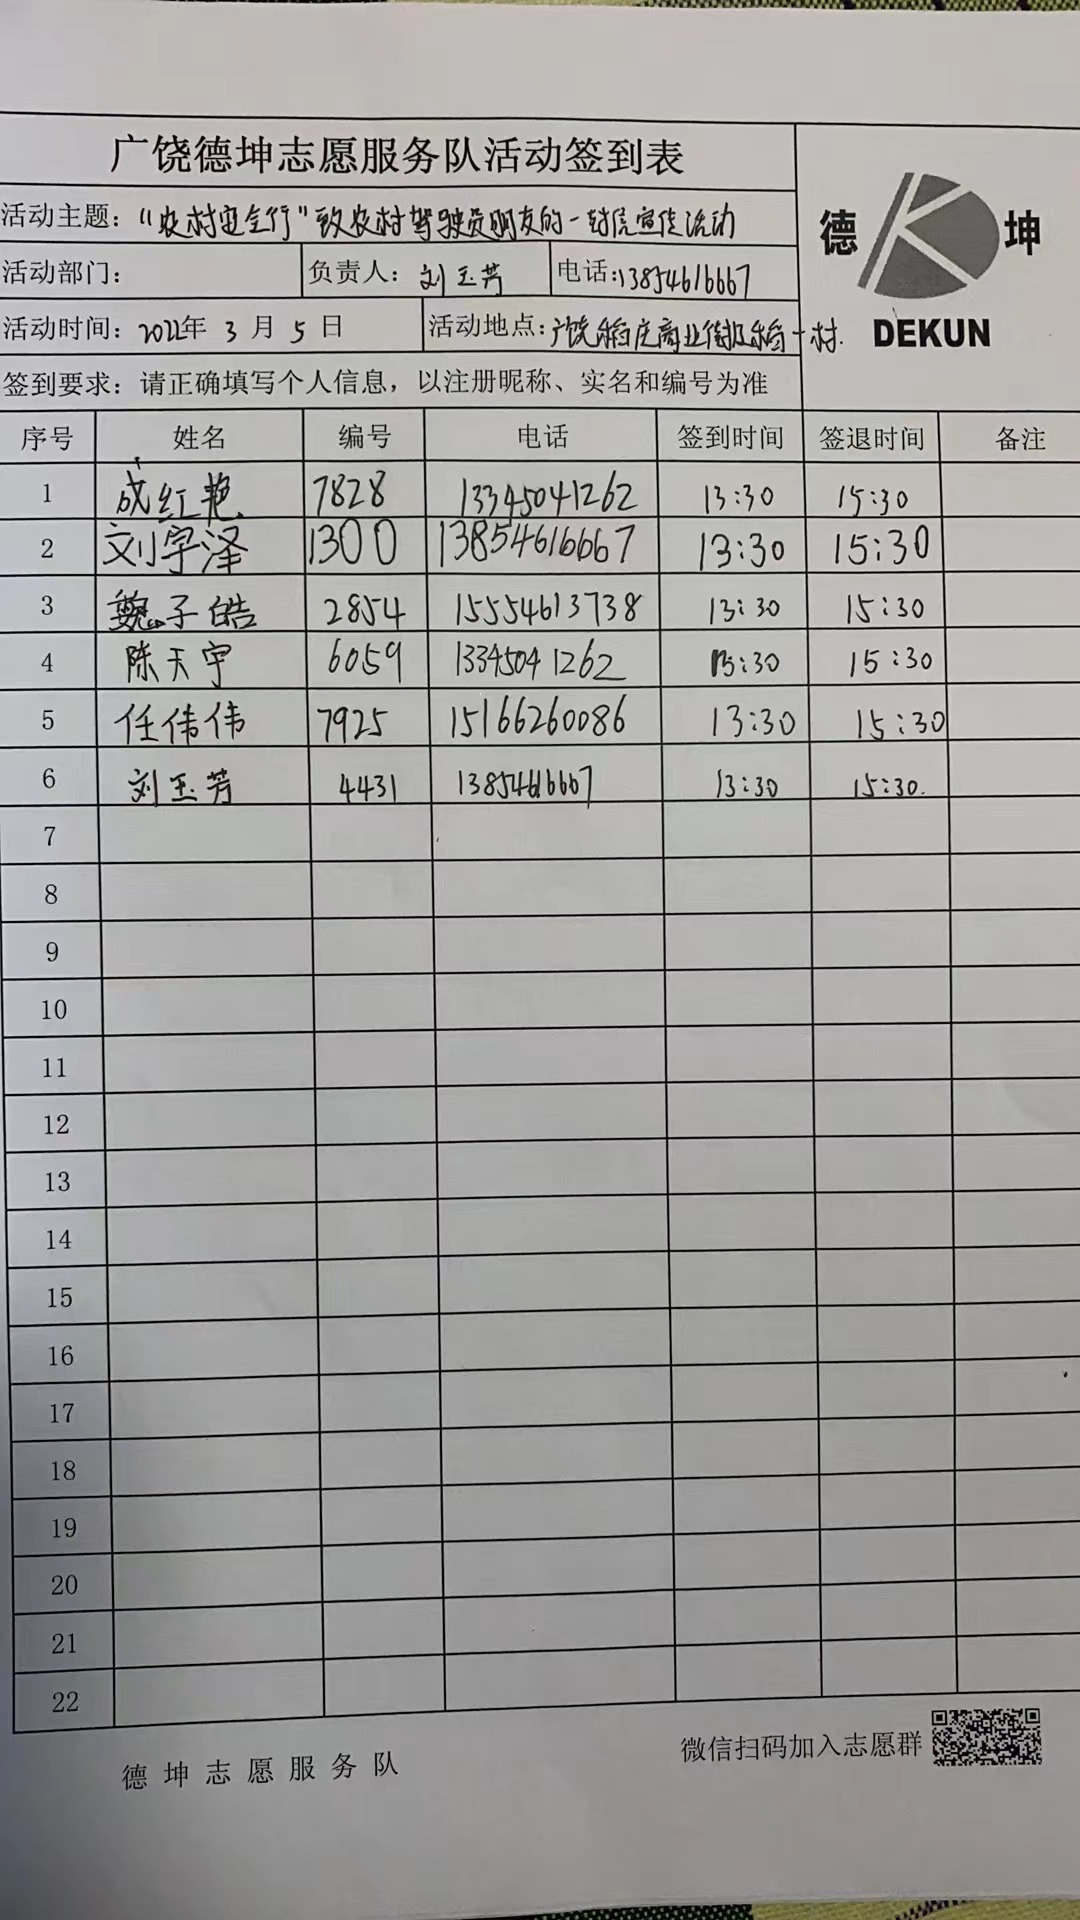 广饶德坤志愿服务队活动签到表
活动主题："农村安全行"致农村驾驶员朋友的一封信宣传活动
德 坤
DEKUN
活动部门： 负责人：刘玉芳 电话：13854616667
活动时间：2022年 3 月 5 日 活动地点：广饶稻庄商业街及稻一村.
签到要求：请正确填写个人信息，以注册昵称、实名和编号为准
序号 姓名 编号 电话 签到时间 签退时间 备注
1 成红艳 7828 13345041262 13:30 15:30
2 刘宇泽 1300 13854616667 13:30 15:30
3 魏子皓 2854 15554613738 13:30 15:30
4 陈天宇 6059 13345041262 13:30 15:30
5 任伟伟 7925 15166260086 13:30 15:30
6 刘玉芳 4431 13854616667 13:30 15:30.
7
8
9
10
11
12
13
14
15
16
17
18
19
20
21
22
德坤志愿服务队 微信扫码加入志愿群